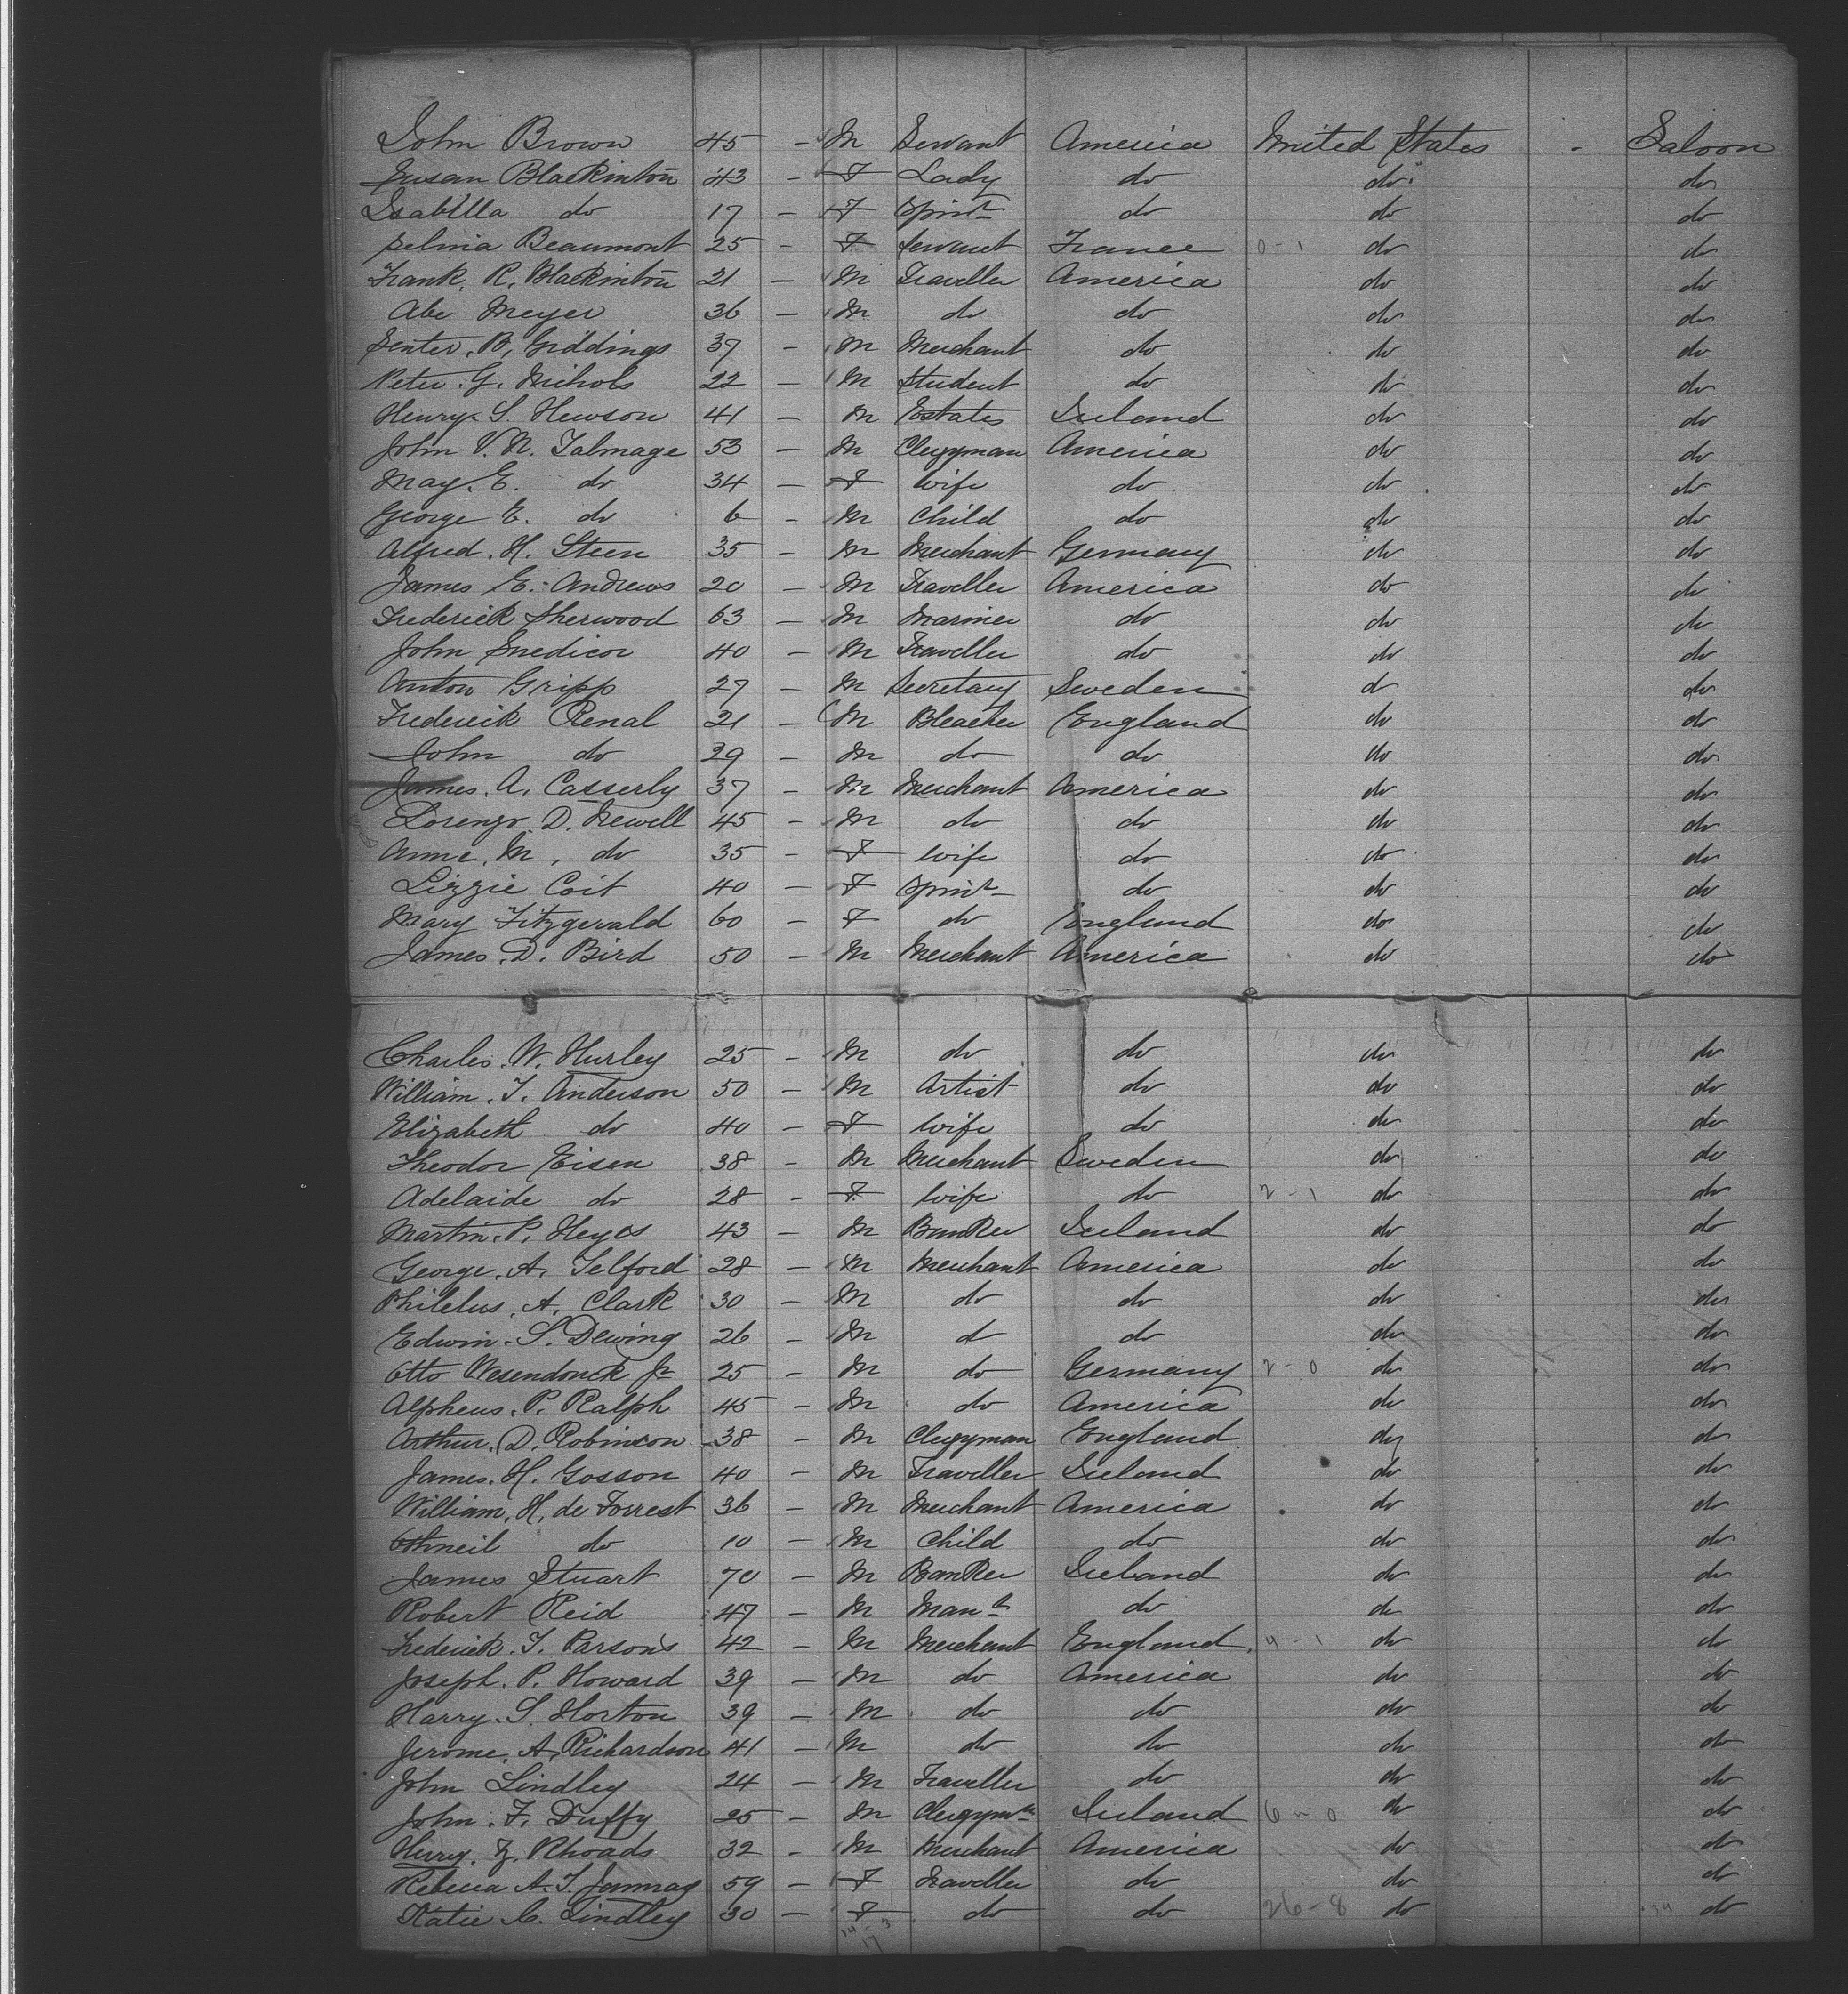 John Brown 45 - M Servant America United States - Saloon
Susan Blackinton 43 - F Lady do do do
Isabella do 17 - F Spinr do do do
Selinia Beaumont 25 - F Servant France 0-1 do do
Frank. R. Blackinton 21 - M Traveller America do do
Abe Meyer 36 - M do do do do
Senter. B. Giddings 37 - M Merchant do do do
Peter. G. Nichols 22 - M Student do do do
Henry S. Hewson 41 - M Estates Ireland do do
John V. N. Talmage 53 - M Clegyman America do do
May. E. do 34 - F Wife do do do
George E. do 6 - M Child do do do
Alfred. H. Steen 35 - M Merchant Germany do do
James E. Andrews 20 - M Traveller America do do
Frederick Sherwood 63 - M Mariner do do do
John Snedicor 40 - M Traveller do do do
Anton Gripp 27 - M Secretary Sweden do do
Frederick Renal 21 - M Bleacher England do do
John do 29 - M do do do do
James. A. Casserly 37 - M Merchant America do do
Lorenzo. D. Newell 45 - M do do do do
Anne. M. do 35 - F Wife do do do
Lizzie Coit 40 - F Spinr do do do
Mary Fitzgerald 60 - F do England do do
James. D. Bird 50 - M Merchant America do do
Charles. W. Hurley 25 - M do do do do
William. T. Anderson 50 - M Artist do do do
Elizabeth do 40 - F Wife do do do
Theodor Eisen 38 - M Merchant Sweden do do
Adelaide do 28 - F Wife do 2-1 do do
Martin. P. Heyes 43 - M Banker Ireland do do
George. A. Telford 28 - M Merchant America do do
Philelus. A. Clark 30 - M do do do do
Edwin. S. Dewing 26 - M do do do do
Otto Wesendonck Jr 25 - M do Germany 2-0 do do
Alpheus. P. Ralph 45 - M do America do do
Arthur. D. Robinson 38 - M Clegyman England do do
James. H. Gosson 40 - M Traveller Ireland do do
William. H. de Forrest 36 - M Merchant America do do
Othneil do 10 - M Child do do do
James Stuart 70 - M Banker Ireland do do
Robert Reid 47 - M Manr do do do
Frederick. T. Parsons 42 - M Merchant England 4-1 do do
Joseph. P. Howard 39 - M do America do do
Harry. S. Horton 39 - M do do do do
Jerome. A. Richardson 41 - M do do do do
John Lindley 24 - M Traveller do do do
John. F. Duffy 25 - M Clegymn Ireland 6-0 do do
Henry. Z. Rhoads 32 - M Merchant America do do
Rebecca A. T. 59 - F Traveller do do do
Katie C. Lindley 30 - F do do 26-8 do 34 do
14-3
17